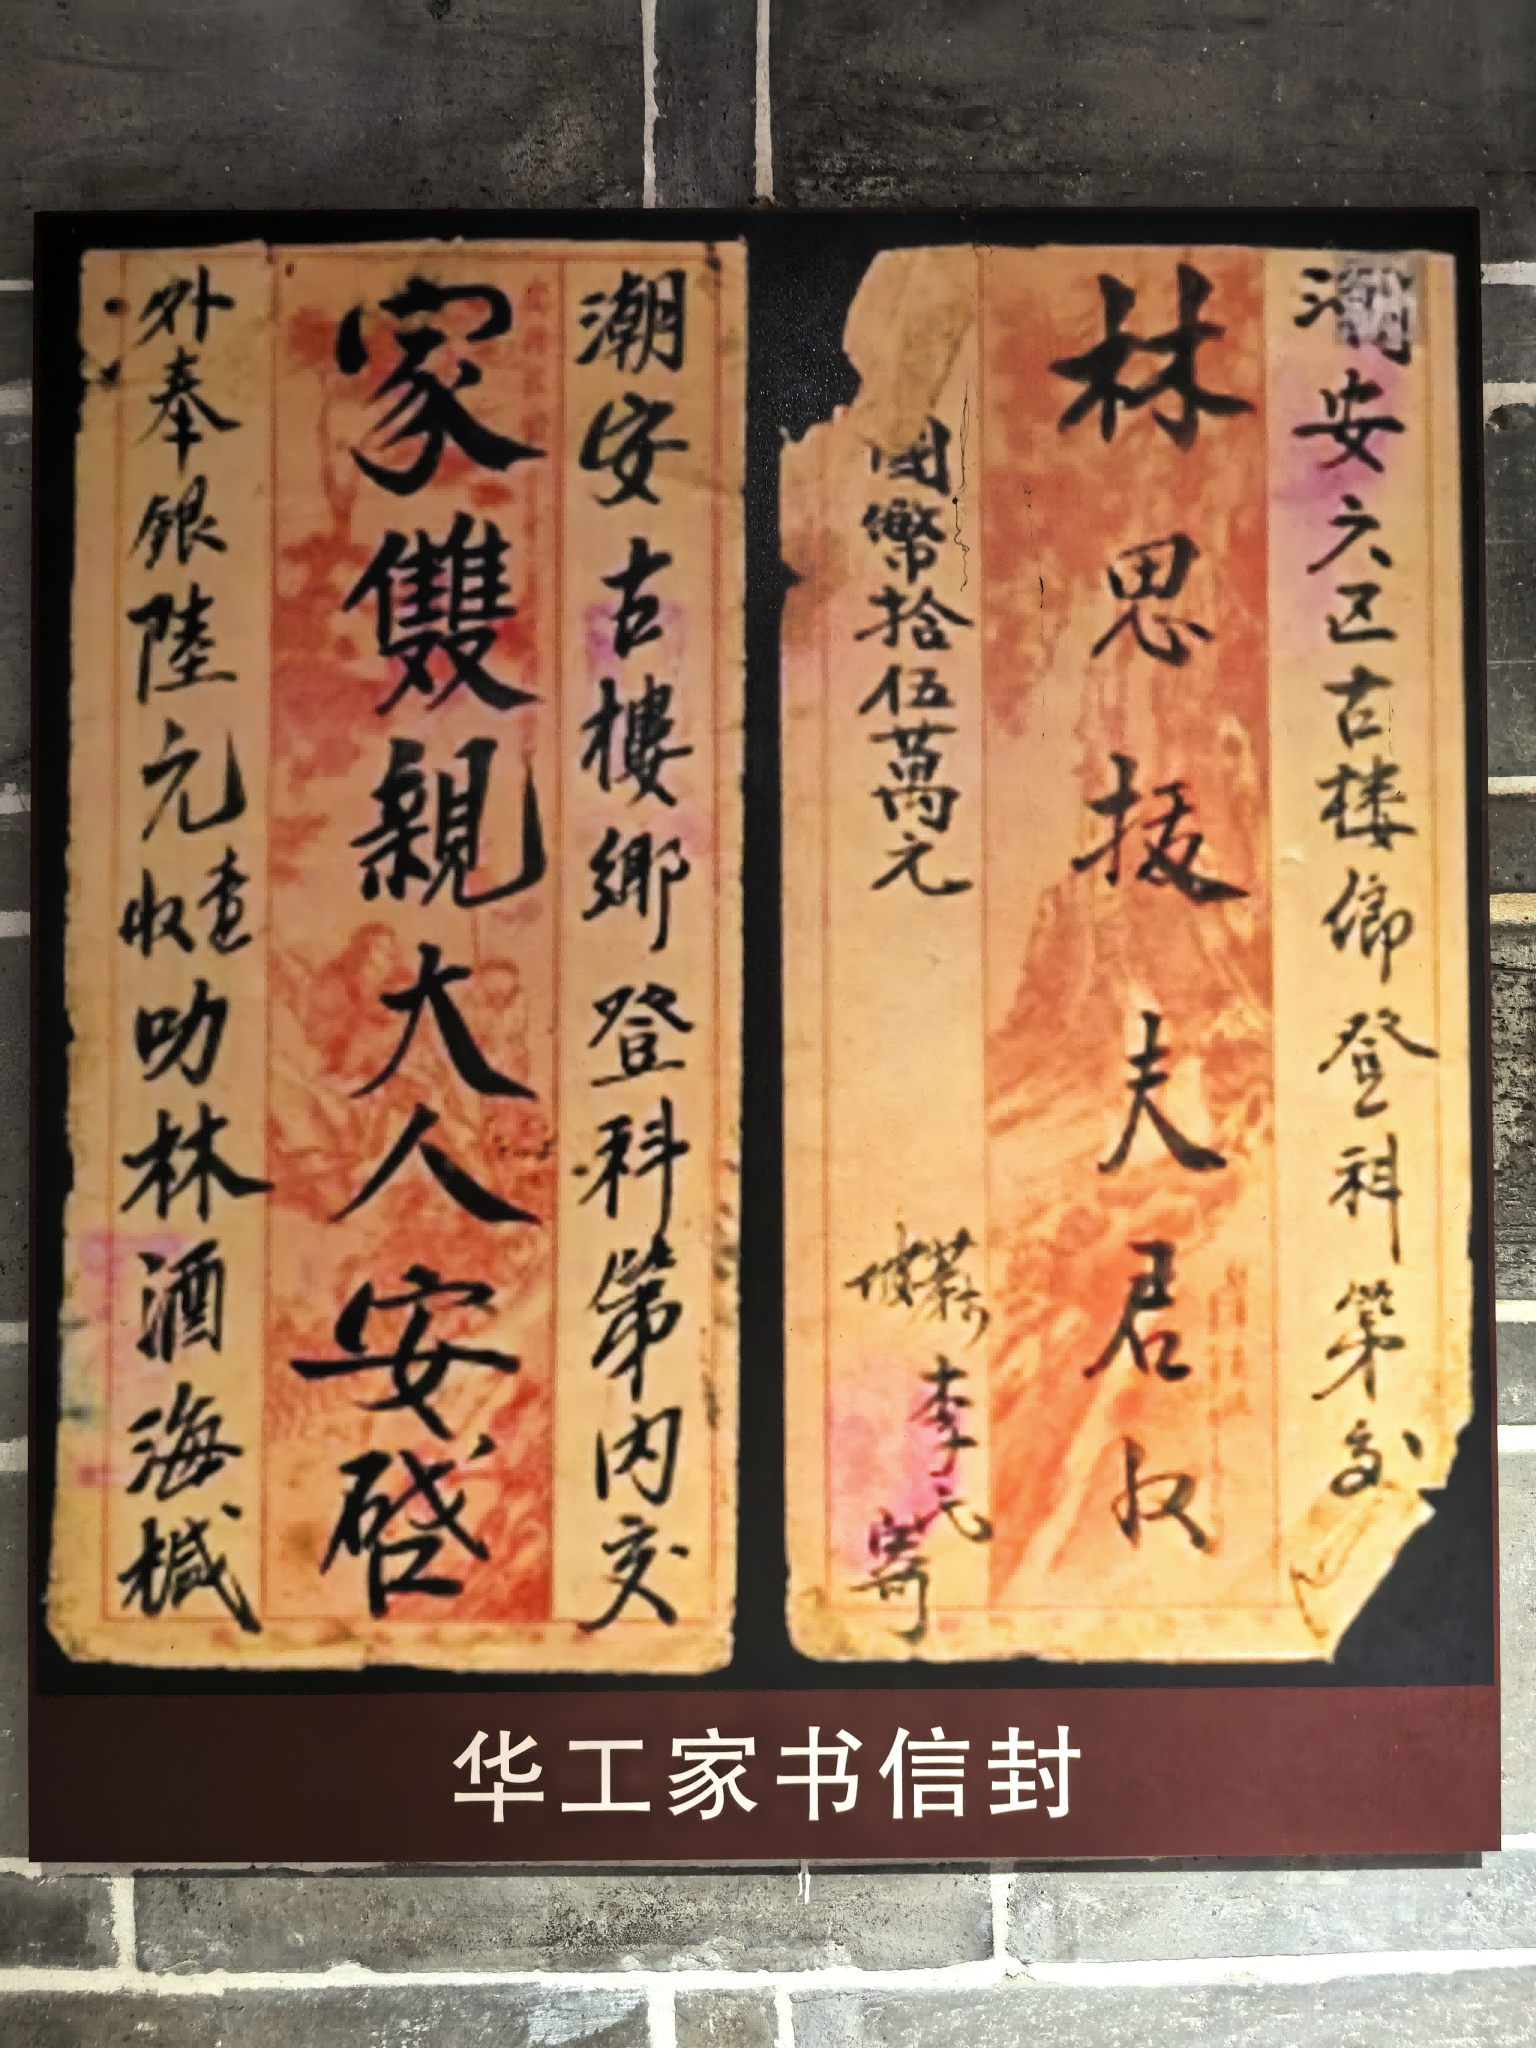 潮安六区古楼鄉登科第交
林思拔夫君收
國幣拾伍萬元
叻 李元寄
潮安古樓鄉登科第內交
家雙親大人安啓
外奉銀陸元查收 叻林酒海械
华工家书信封